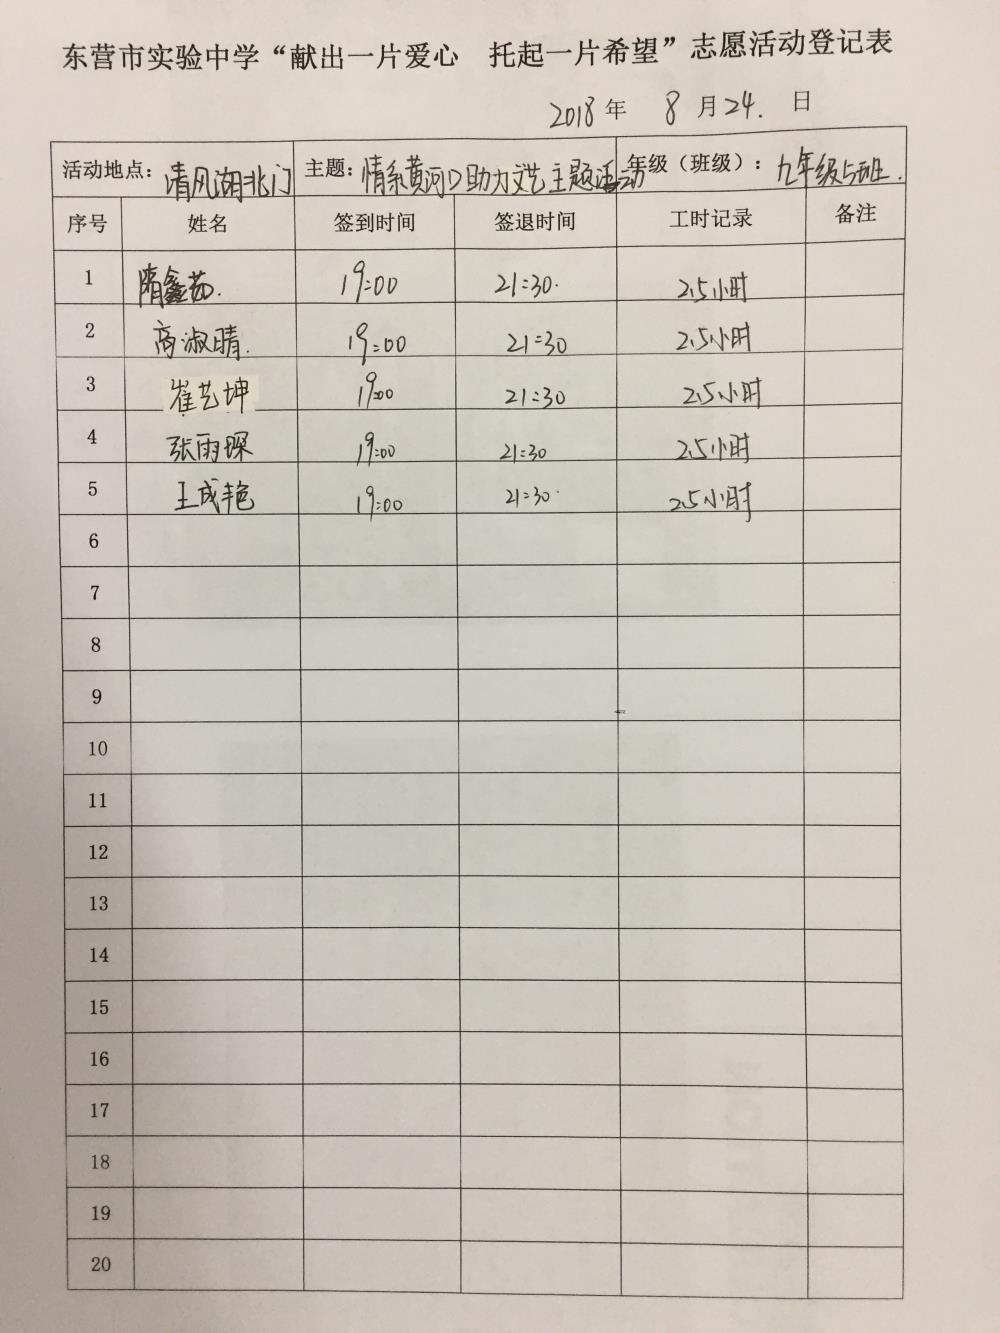 东营市实验中学“献出一片爱心 托起一片希望”志愿活动登记表
2018年 8月24.日
活动地点：清风湖北门 主题：情系黄河口助力文艺主题活动 年级（班级）：九年级5班.
序号 姓名 签到时间 签退时间 工时记录 备注
1 隋鑫茹. 19:00 21:30. 2.5小时
2 高淑晴. 19:00 21:30 2.5小时
3 崔艺坤 19:00 21:30 2.5小时
4 张雨琛 19:00 21:30 2.5小时
5 王成艳 19:00 21:30. 2.5小时
6
7
8
9
10
11
12
13
14
15
16
17
18
19
20